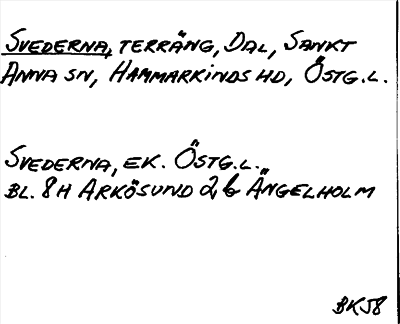 SVEDERNA, TERRÄNG, DAL, SANKT
ANNA SN, HAMMARKINDS HD, ÖSTG.L.
SVEDERNA, EK. ÖSTG.L.
BL. 8H ARKÖSUND 2 b ÄNGELHOLM
BK58